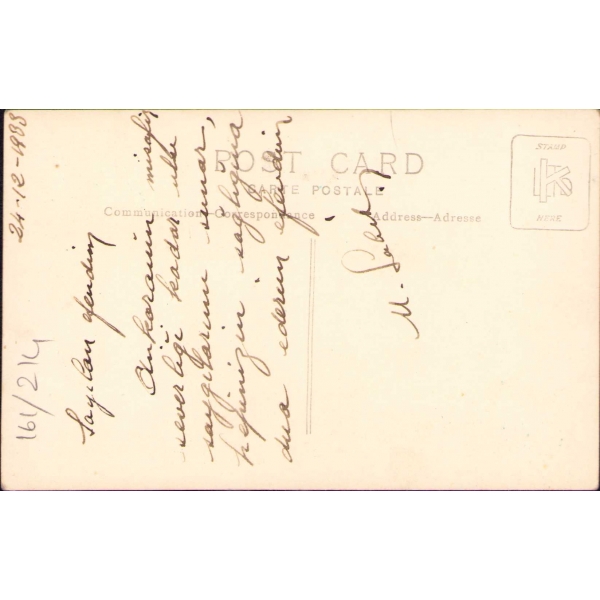 24-12-1933
Sayılan efendim
Ankaranın misafir
severliği kadar ulu
saygılarımı sunar,
hepinizin sağlığına
dua ederim efendim
M. Sabit
161/214
POST CARD
CARTE POSTALE
Communication—Correspondance
Address—Adresse
STAMP
HERE